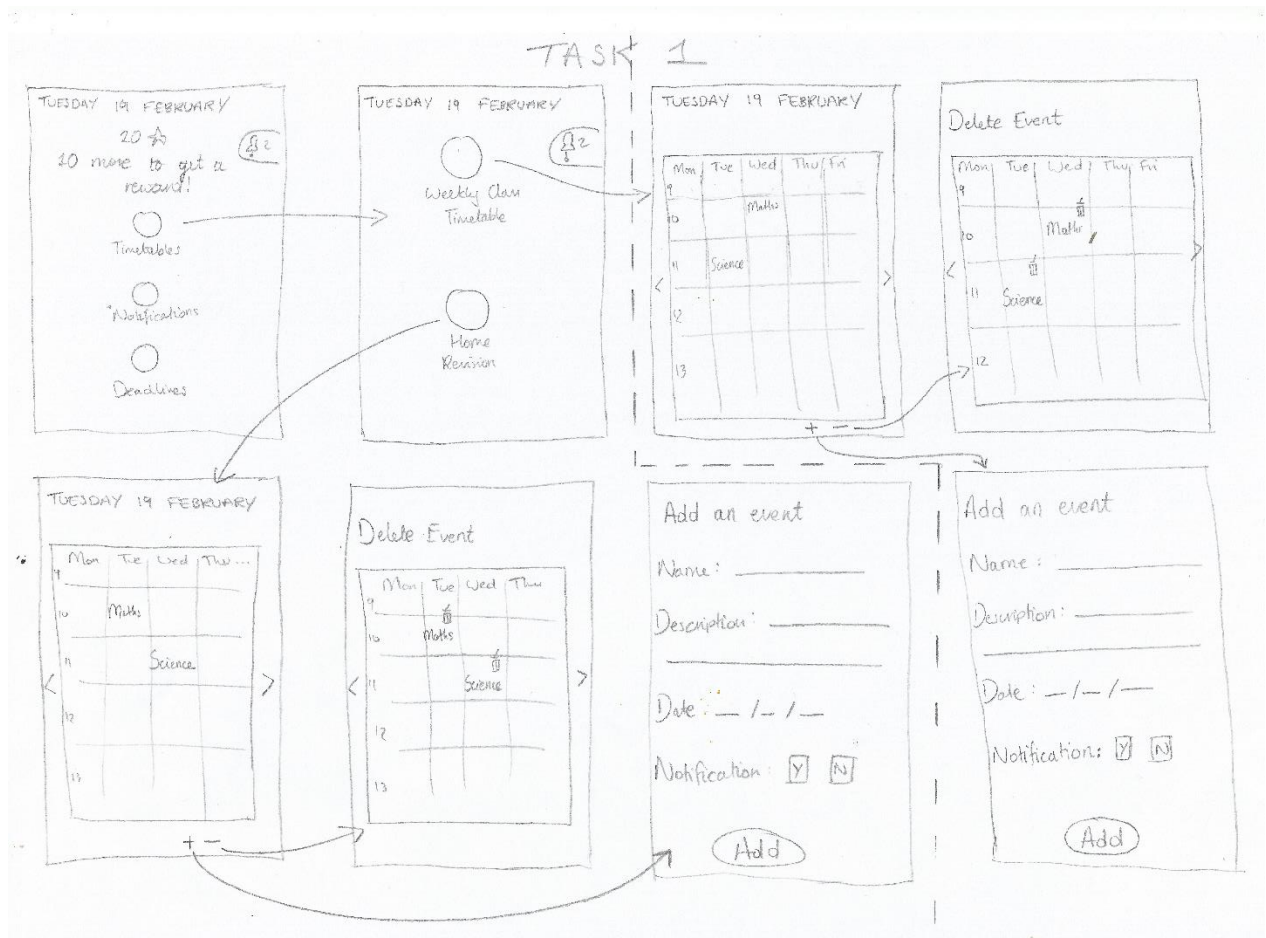 TASK 1
TUESDAY 19 FEBRUARY
20
10 more to get a
reward!
2
Timetables
Notifications
Deadlines
TUESDAY 19 FEBRUARY
2
Weekly Class
Timetable
Home
Revision
TUESDAY 19 FEBRUARY
Mon Tue Wed Thu Fri
9
10 Maths
11 Science
12
13
< >
+ -
Delete Event
Mon Tue Wed Thu Fri
9
10 Maths
11 Science
12
< >
TUESDAY 19 FEBRUARY
Mon Tue Wed Thu...
9
10 Maths
11 Science
12
13
< >
+ -
Delete Event
Mon Tue Wed Thu
9
10 Maths
11 Science
12
13
< >
Add an event
Name:
Description:
Date: _ / _ / _
Notification: Y N
Add
Add an event
Name:
Description:
Date: _ / _ / _
Notification: Y N
Add